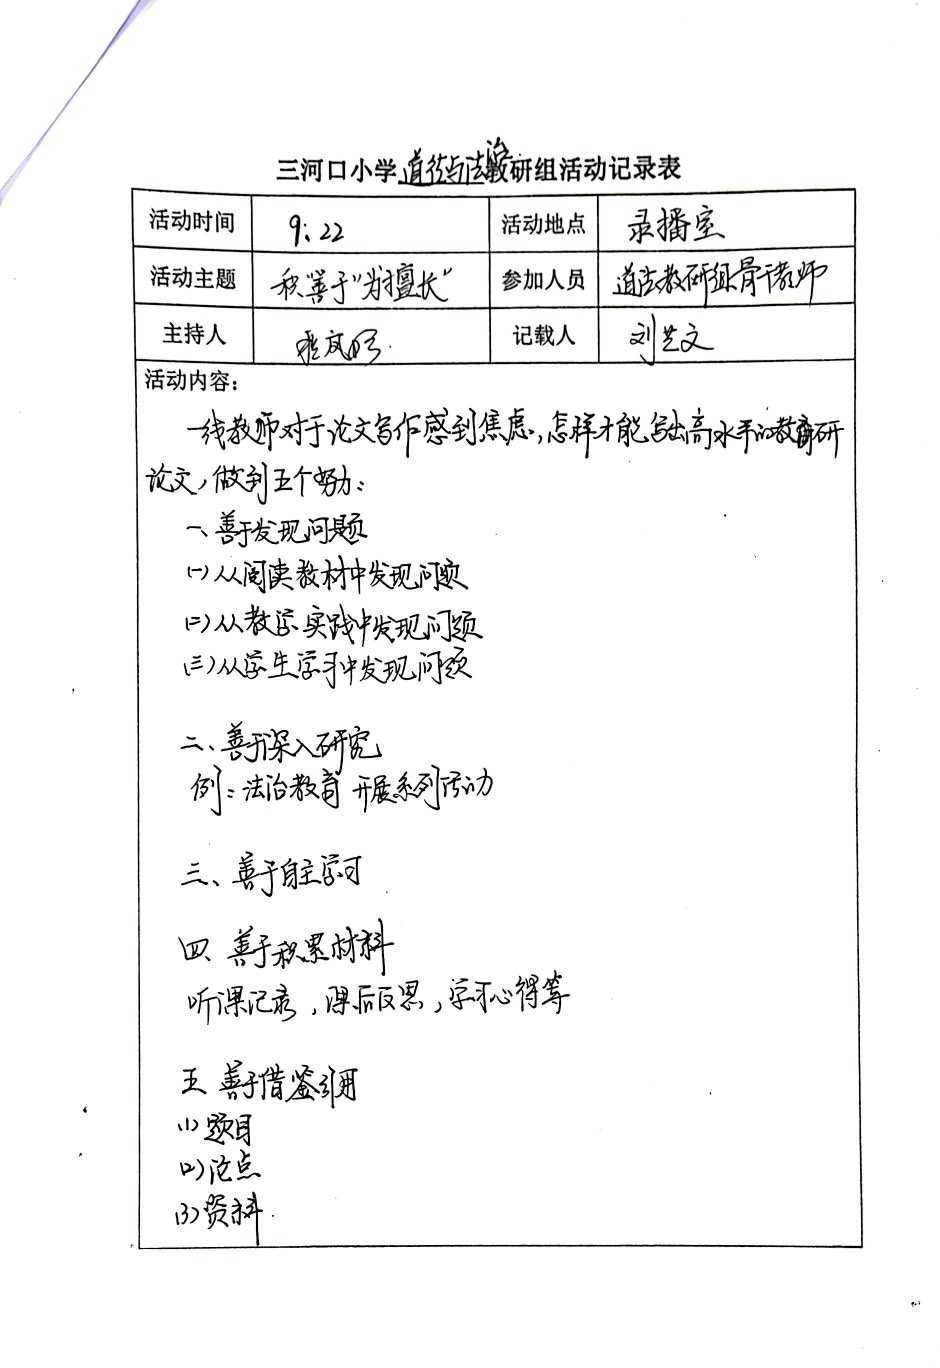 三河口小学道德与法治教研组活动记录表
活动时间 9:22 活动地点 录播室
活动主题 积"善于"为"擅长" 参加人员 道法教研组骨干教师
主持人 记载人 刘艺文
活动内容：
一线教师对于论文写作感到焦虑，怎样才能写出高水平的教育研
论文，做到五个努力：
一、善于发现问题
(一)从阅读教材中发现问题
(二)从教学实践中发现问题
(三)从学生学习中发现问题
二、善于深入研究
例：法治教育 开展系列活动
三、善于自主学习
四、善于积累材料
听课记录，课后反思，学习心得等
五、善于借鉴引用
(1)题目
(2)论点
(3)资料